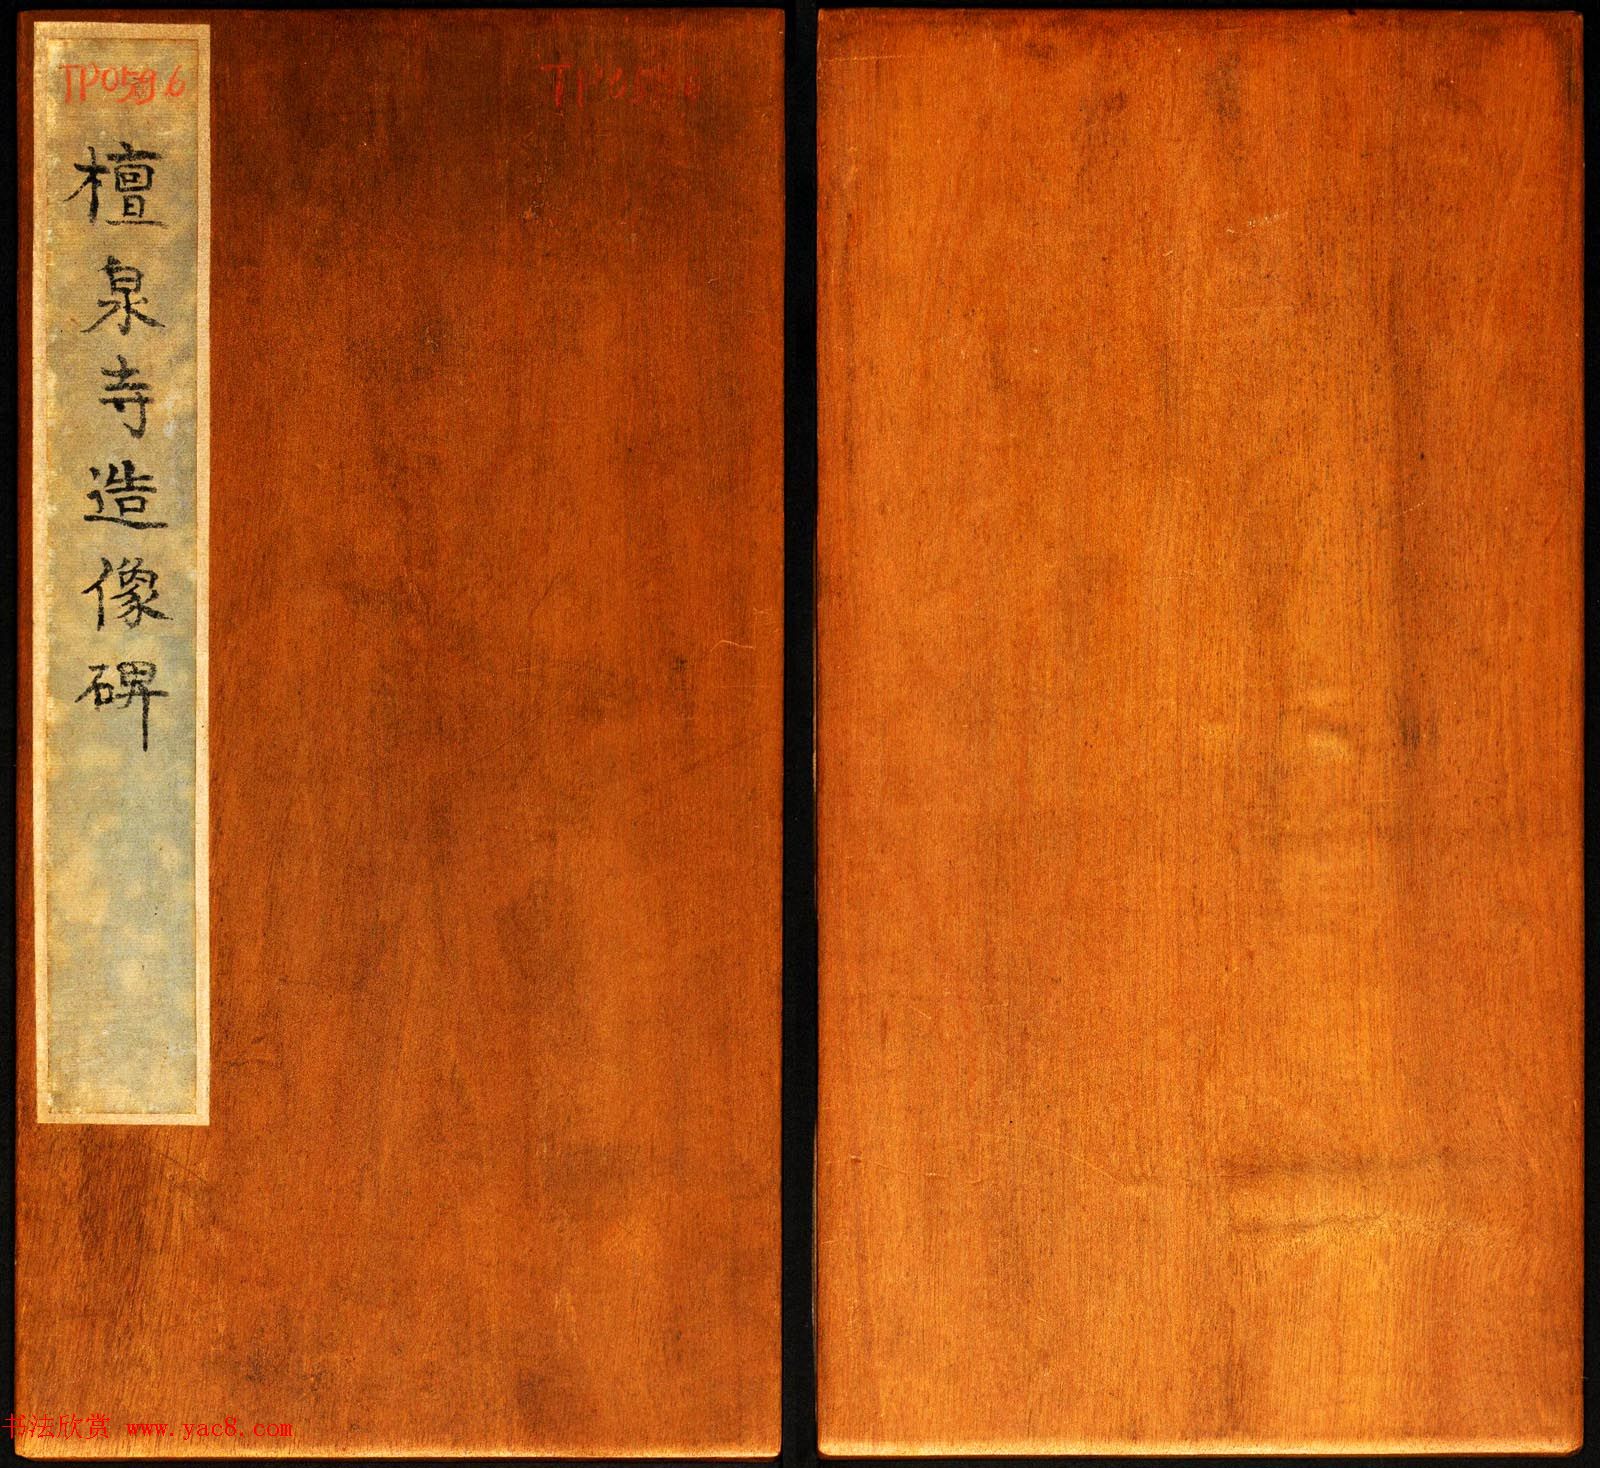 TP0596
TP0596
檀泉寺造像碑
书法欣赏 www.yac8.com